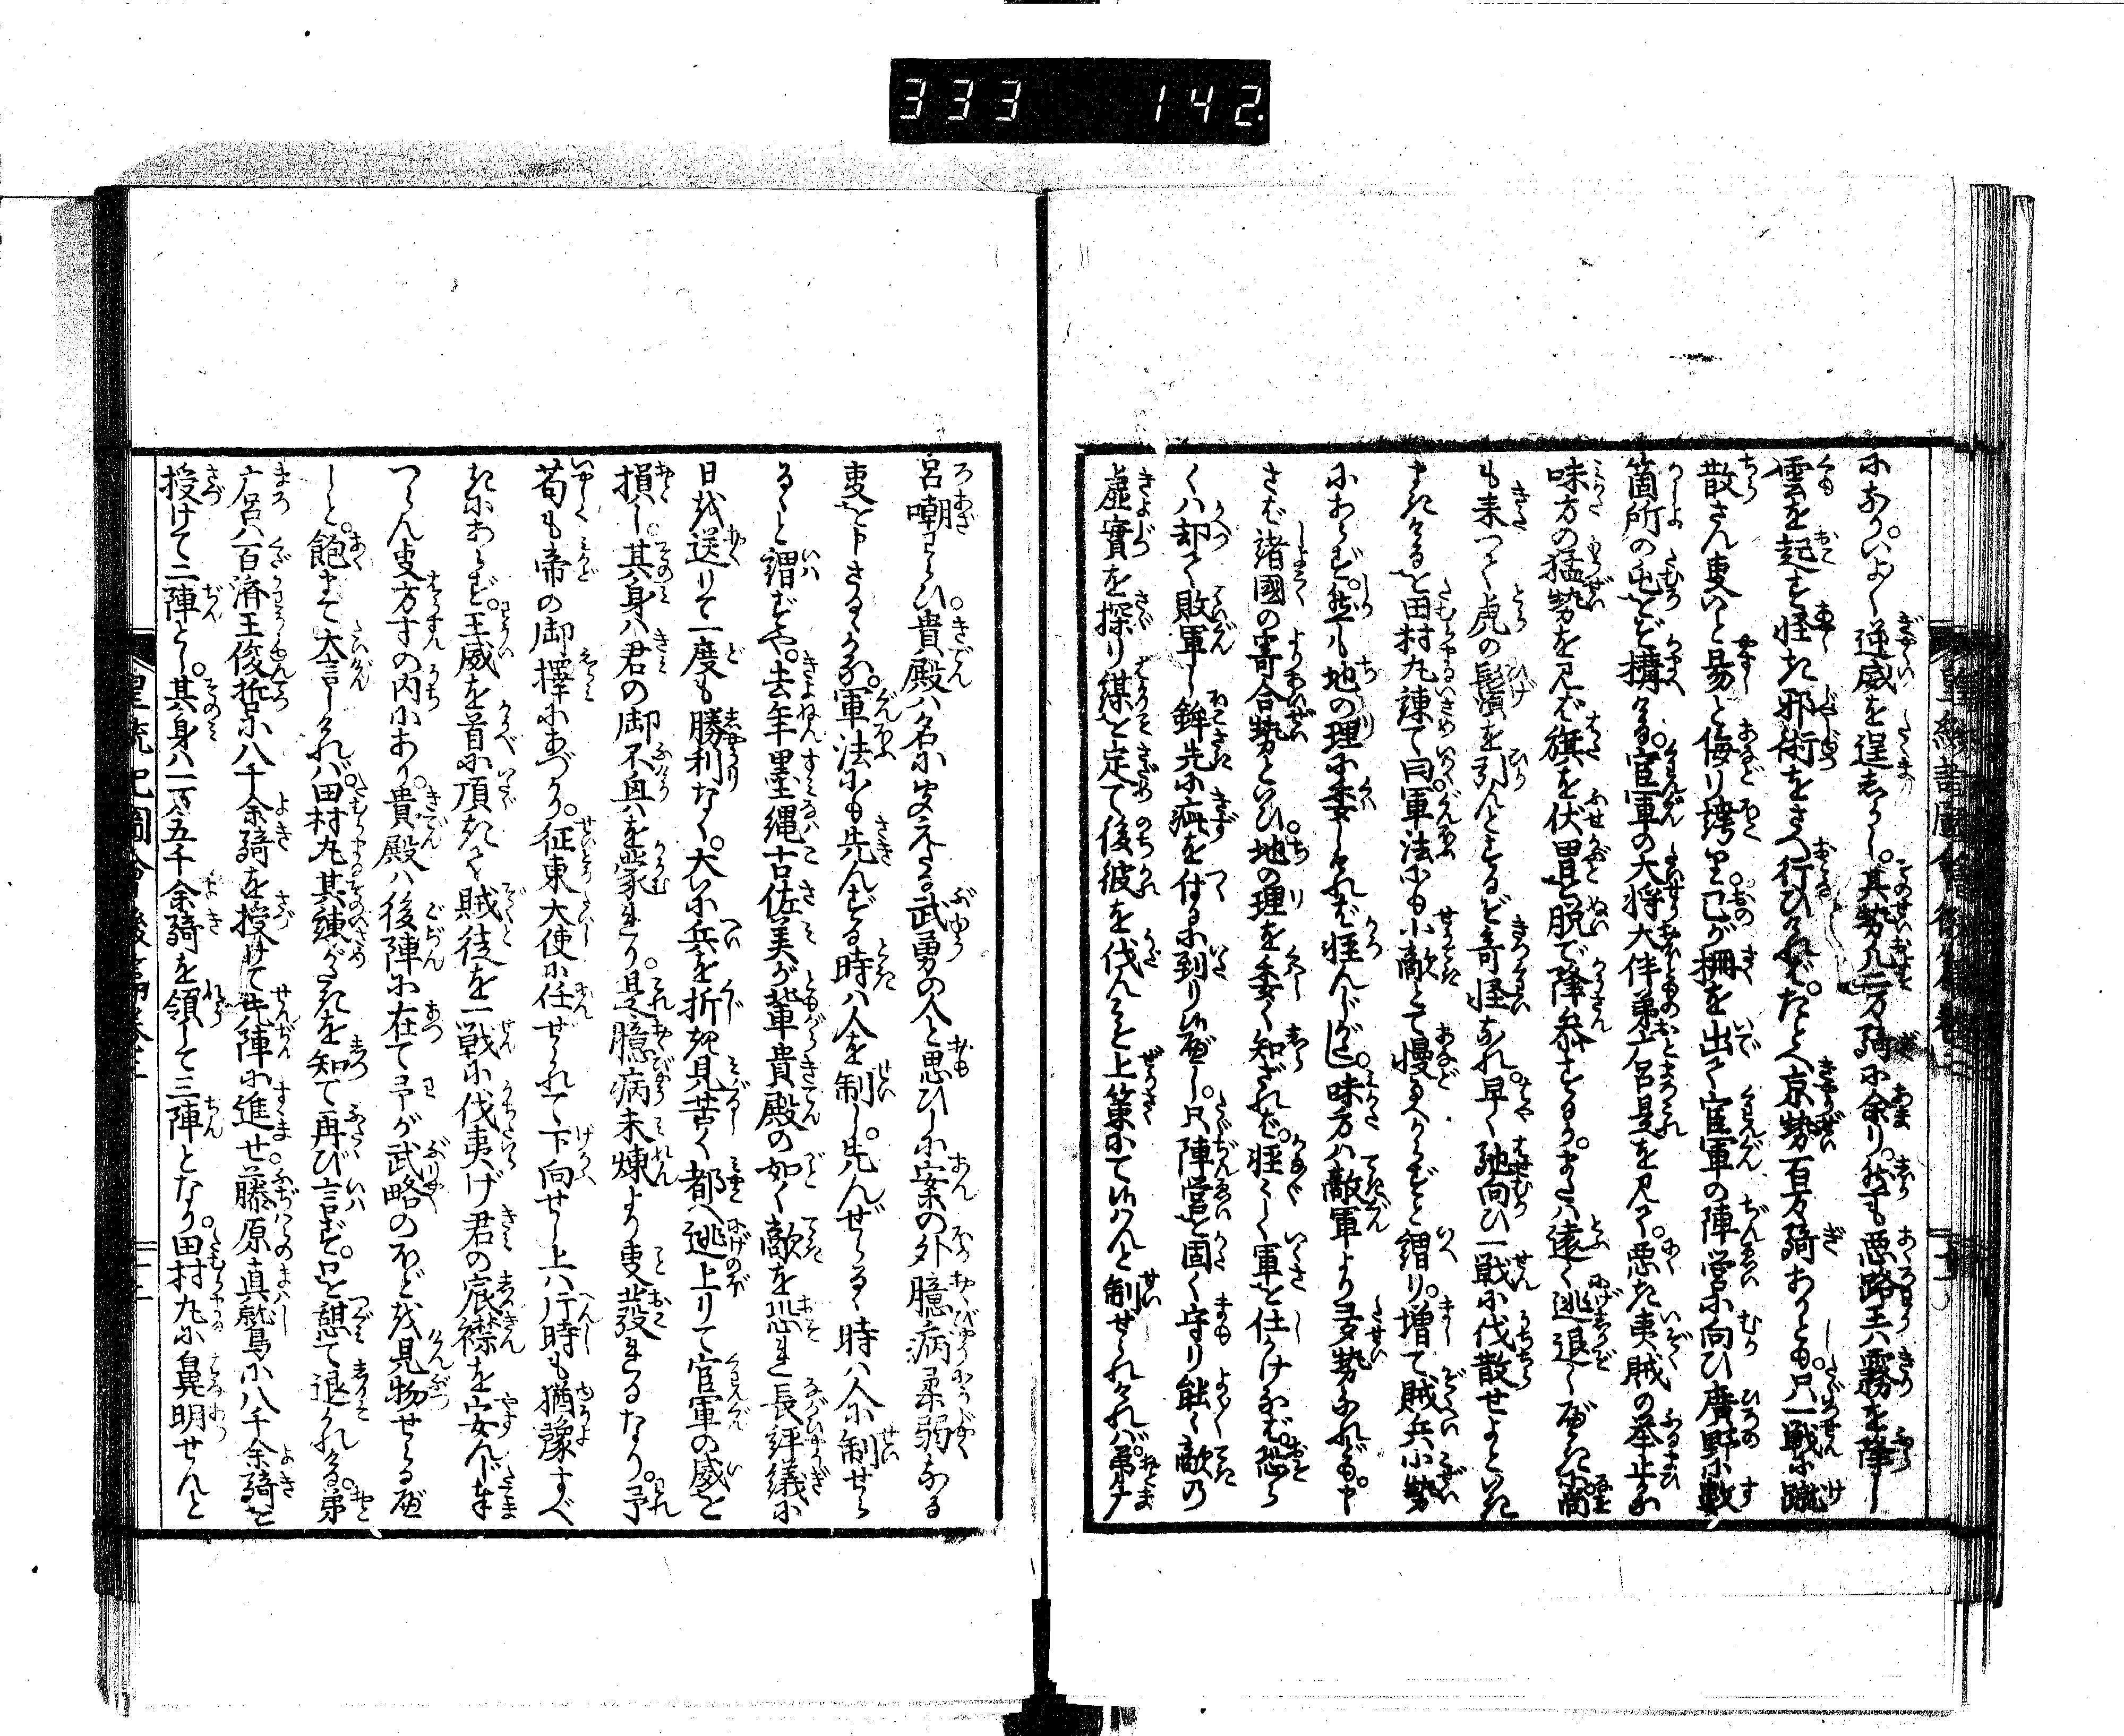 333 142.
になり。いよ〱逆威を逞しうし。其勢凡二万騎に余り。然も悪路王ハ霧を降し
雲を起すの怪き邪術をさへ行ひけれバ。たとへ京勢百万騎ありとも。只一戦に蹴
散さん事いと易しと侮り誇り。己が柵を出て官軍の陣営に向ひ廣野に数
箇所の屯をぞ構ける。官軍の大将大伴弟广呂是を見て。悪き夷賊の挙止かな
味方の猛勢を見バ旗を伏冑を脱で降参するか。または遠く迯退くべきに。尚
も来つて虎の鬚を引んとするぞ奇怪なれ。早く馳向ひ一戦に伐散せよといき
まきけるを田村丸諫て曰。軍法にも小敵とて慢るべからずと謂り。増て賊兵小勢
にあらず。然ども地の理に委しけれバ軽んじがたし。味方ハ敵軍より多勢なれども。
さバ諸國の寄合勢といひ。地の理を委く知ざれバ。軽〱しく軍を仕かけなバ。恐ら
くハ却て敗軍し鉾先に疵を付るに到り候べし。只陣営を固く守り能〱敵の
虚實を探り謀を定て後彼を伐んこそ上策にて候ハんと制せられけれバ。弟广
呂嘲わらひ。貴殿ハ名に聞えたる武勇の人と思ひしに案の外臆病柔弱なる
事を申さるゝかな。軍法にも先んずる時ハ人を制し。先んぜらるゝ時ハ人に制せら
るゝと謂ずや。去年墨縄古佐美が輩貴殿の如く敵を恐れ長評議に
日を送りて一度も勝利なく。大に兵を折き見苦く都へ迯上りて官軍の威を
損し。其身ハ君の御不興を蒙れり。是臆病未煉より事発れるなり。予
苟も帝の御擇にあづかり。征東大使に任ぜられて下向せし上ハ片時も猶豫すべ
きにあらず。王威を首に頂きて賊徒を一戦に伐夷げ君の宸襟を安んじ奉
つらん事方寸の内にあり。貴殿ハ後陣に在て予が武略のほどを見物せらるべ
しと。飽まで大言しけれバ。田村丸其諫がたきを知て再び言ず。口を憇て退かれける。弟
广呂ハ百済王俊哲に八千余騎を授けて先陣に進せ。藤原真鷲に八千余騎を
授けて二陣とし。其身ハ一万五千余騎を領して三陣となり。田村丸に鼻明せんと